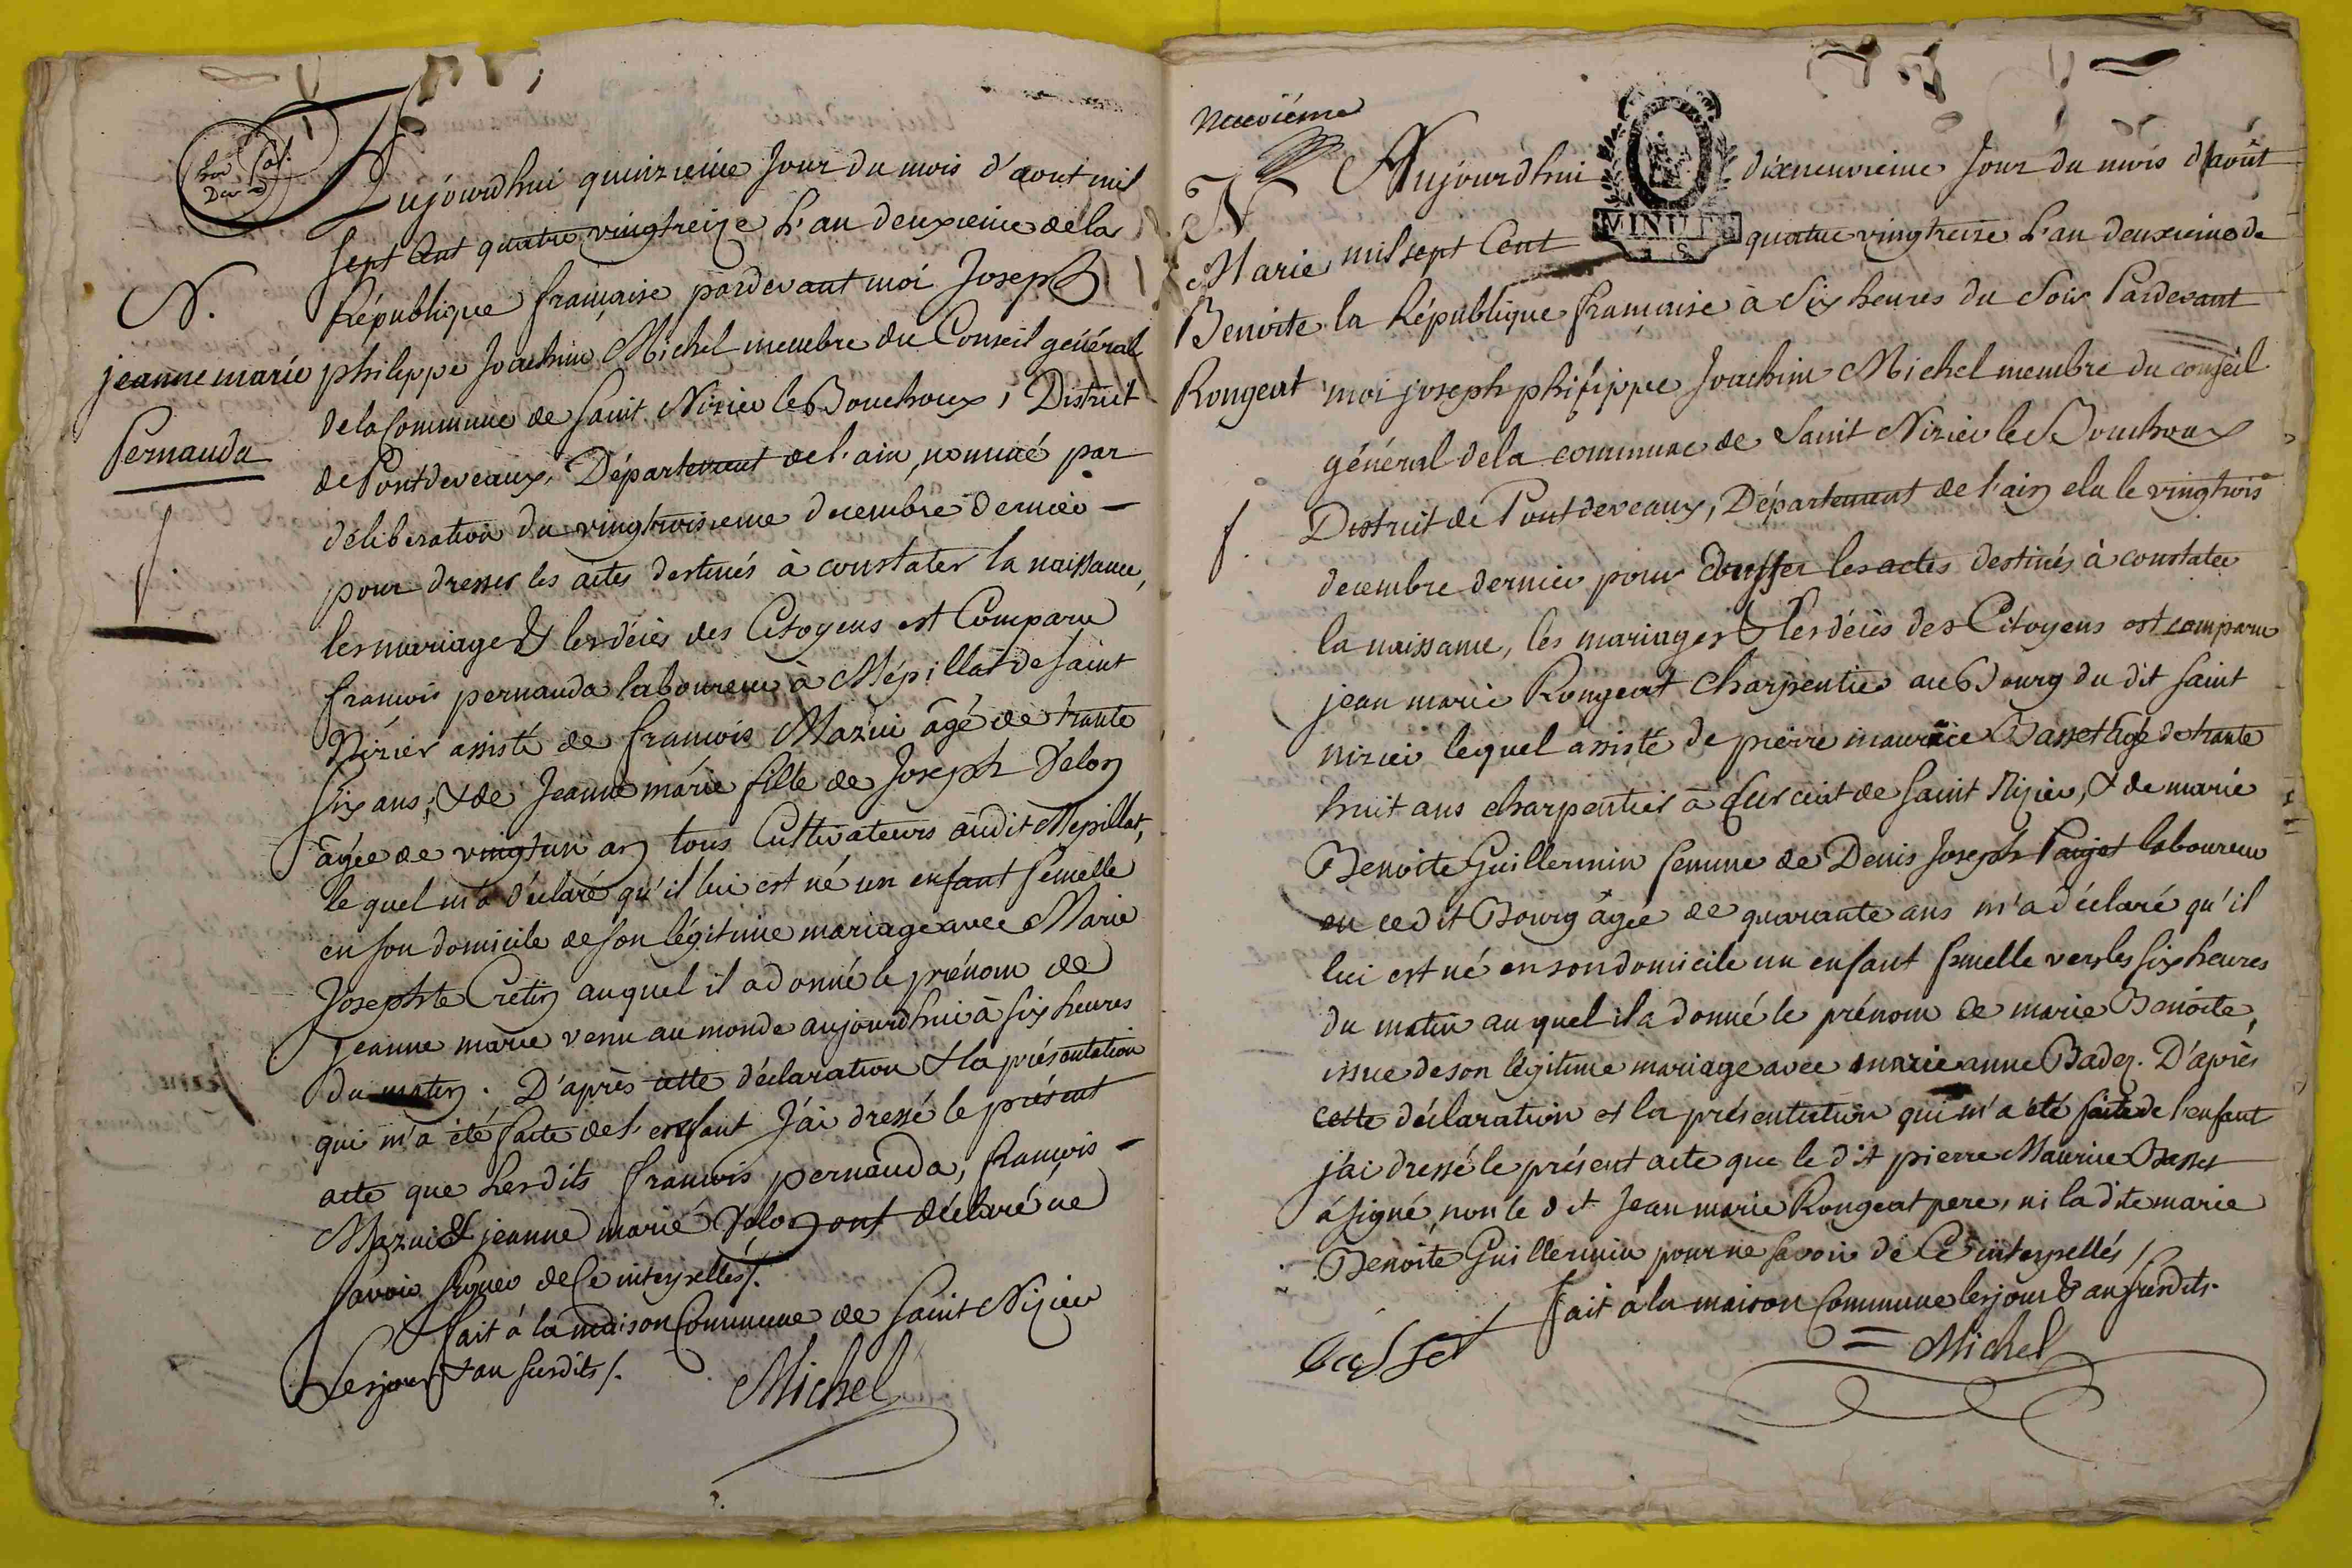 Aujourdhui quinzieme Jour du mois d'aout mil
sept Cent quatre vingtreize L'an deuxieme de la
République française pardevant moi Joseph
philippe Joachim Michel membre du Conseil général
de la Commune de Saint Nizier le Bouchoux, District
de Pontdeveaux, Département de l'ain, nommé par
déliberation du vingtroisieme decembre dernier –
pour dresser les actes destinés à constater la naissance,
les mariages & les décès des Citoyens est Comparu
francois pernauda laboureur à Mépillat de Saint
Nizier assisté de francois Mazui âgé de trante
six ans, & de Jeanne marie fille de Joseph Velon
âgée de vingtun an tous Cultivateurs audit Mepillat,
lequel m'a déclaré qu'il lui est né un enfant femelle
en son domicile de son légitime mariage avec Marie
Josephte Cretin auquel il a donné le prénom de
Jeanne marie venu au monde aujourdhui à six heures
du matin. D'après cette déclaration & la présentation
qui m'a été faite de l'enfant J'ai dressé le présent
acte que Lesdits francois pernauda, francois –
Mazui & jeanne marie Velon ont déclaré ne
savoir signer de Ce interpellés /.
fait à la maison Commune de Saint Nizier
Les jour & an susdits /.
Michel
N.
jeanne marie
Pernauda
f.
neuvième
N
Marie
Benoite
Rongeat
f.
Aujourdhui dixneuvieme Jour du mois d'août
mil sept Cent quatre vingtreize L'an deuxieme de
la République francaise à Six heures du Soir Pardevant
moi joseph philippe Joachim Michel membre du conseil
général de la commune de Saint Nizier le Bouchoux
District de Pontdeveaux, Département de l'ain elu le vingtrois
decembre dernier pour dresser les actes destinés à constater
la naissance, les mariages & les décès des Citoyens est comparu
jean marie Rongeat Charpentier au Bourg du dit Saint
nizier lequel assisté de pierre maurice Basset âgé de trante
huit ans charpentier à Curciat de Saint Nizier, & de marie
Benoite Guillermin femme de Denis Joseph Paget laboureur
en cedit Bourg âgée de quarante ans m'a déclaré qu'il
lui est né en son domicile un enfant femelle vers les six heures
du matin auquel il a donné le prénom de marie Benoite,
issue de son légitime mariage avec marie anne Badez. D'après
cette déclaration et la présentation qui m'a été faite de l'enfant
j'ai dressé le présent acte que le dit pierre Maurice Basset
à signé, non le dit Jean marie Rongeat pere, ni la dite marie
Benoite Guillermin pour ne savoir de Ce interpellés /.
fait à la maison Commune les jour & an susdits.
basset
Michel
MINUTE